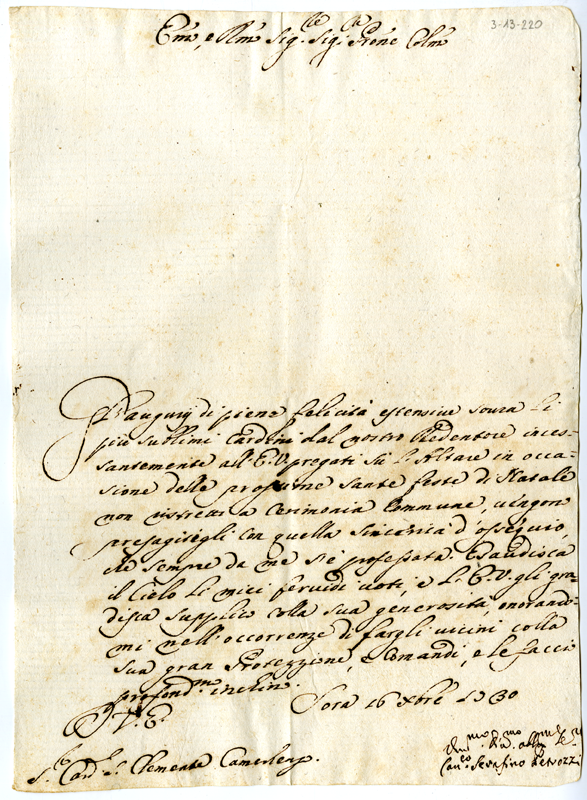 3-13-220
Em.mo, e Rmo Sig.re Sig.re Prone Colmo
Gl'augurj di piene felicità estensive soura li
più sublimi Cardini dal nostro Redentore inces-
santemente all'E.V. pregati sù l'Altare in occa-
sione delle prossime sante feste di Natale
non ristretti a Cerimonia Commune, vengon
presagitigli con quella sincerità d'ossequio,
che sempre da me si è professata. Esaudisca
il Cielo li miei fervidi voti, e l'E.V. gli gra-
disca supplico colla sua generosità, onorando-
mi nell'occorrenze di fargli vicini colla
sua gran Protezzione, e Comandi, e le faccio
profond.ma inclin.
Sora 16 Xbre 1730
D. V. E.
S.r Card.l S. Clemente Camerleng.
Um.mo D.mo
Can.co Serafino Petrozzi